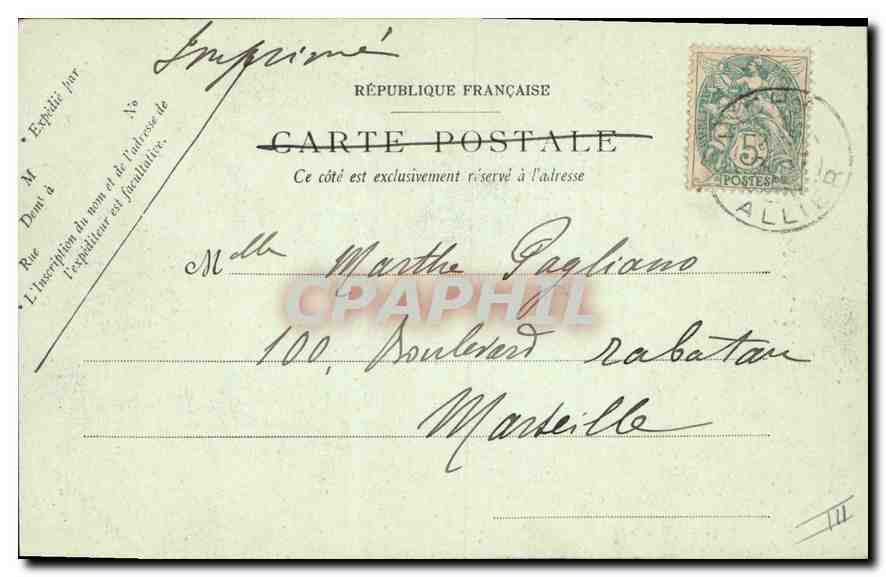 Imprimé
RÉPUBLIQUE FRANÇAISE
CARTE POSTALE
Ce côté est exclusivement réservé à l'adresse
• Expédié par
M
Demt à
No
Rue
• L'Inscription du nom et de l'adresse de
l'expéditeur est facultative.
5c
POSTES
ALLIER
Melle Marthe Pagliano
100, Boulevard rabatau
Marseille
CPAPHIL